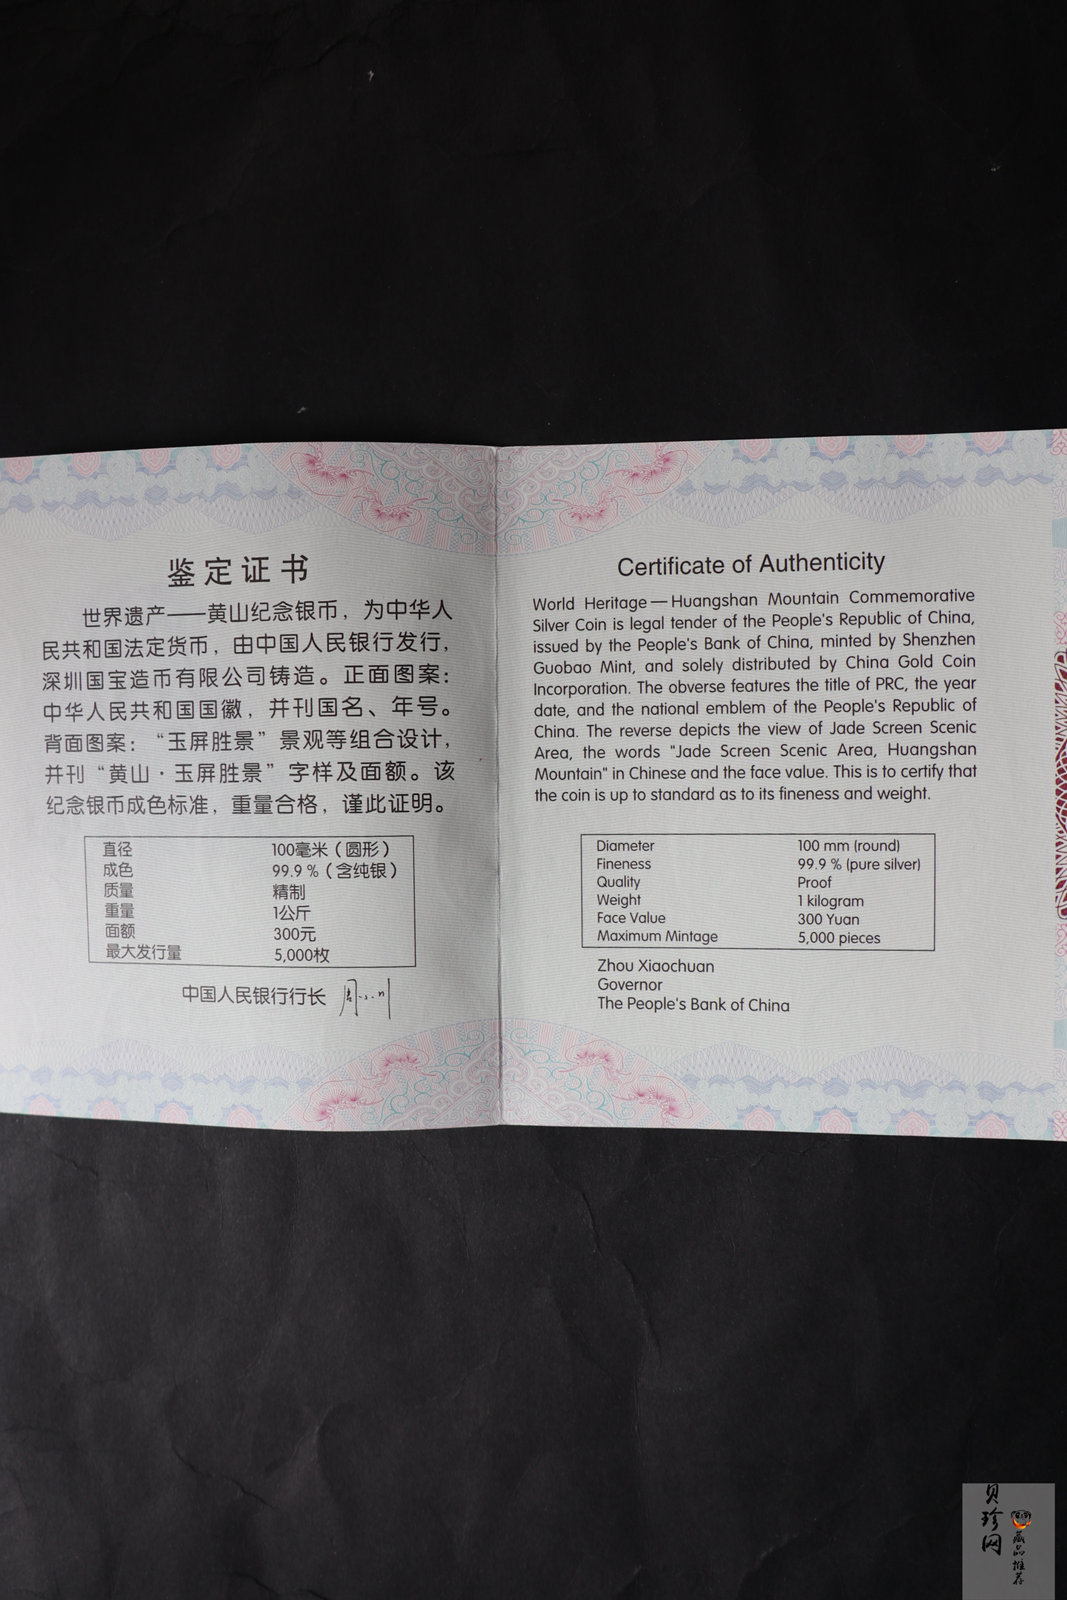 鉴定证书
世界遗产——黄山纪念银币，为中华人
民共和国法定货币，由中国人民银行发行，
深圳国宝造币有限公司铸造。正面图案：
中华人民共和国国徽，并刊国名、年号。
背面图案：“玉屏胜景”景观等组合设计，
并刊“黄山·玉屏胜景”字样及面额。该
纪念银币成色标准，重量合格，谨此证明。
直径 100毫米（圆形）
成色 99.9 %（含纯银）
质量 精制
重量 1公斤
面额 300元
最大发行量 5,000枚
中国人民银行行长
Certificate of Authenticity
World Heritage — Huangshan Mountain Commemorative
Silver Coin is legal tender of the People's Republic of China,
issued by the People's Bank of China, minted by Shenzhen
Guobao Mint, and solely distributed by China Gold Coin
Incorporation. The obverse features the title of PRC, the year
date, and the national emblem of the People's Republic of
China. The reverse depicts the view of Jade Screen Scenic
Area, the words "Jade Screen Scenic Area, Huangshan
Mountain" in Chinese and the face value. This is to certify that
the coin is up to standard as to its fineness and weight.
Diameter 100 mm (round)
Fineness 99.9 % (pure silver)
Quality Proof
Weight 1 kilogram
Face Value 300 Yuan
Maximum Mintage 5,000 pieces
Zhou Xiaochuan
Governor
The People's Bank of China
贝珍网
藏品推荐